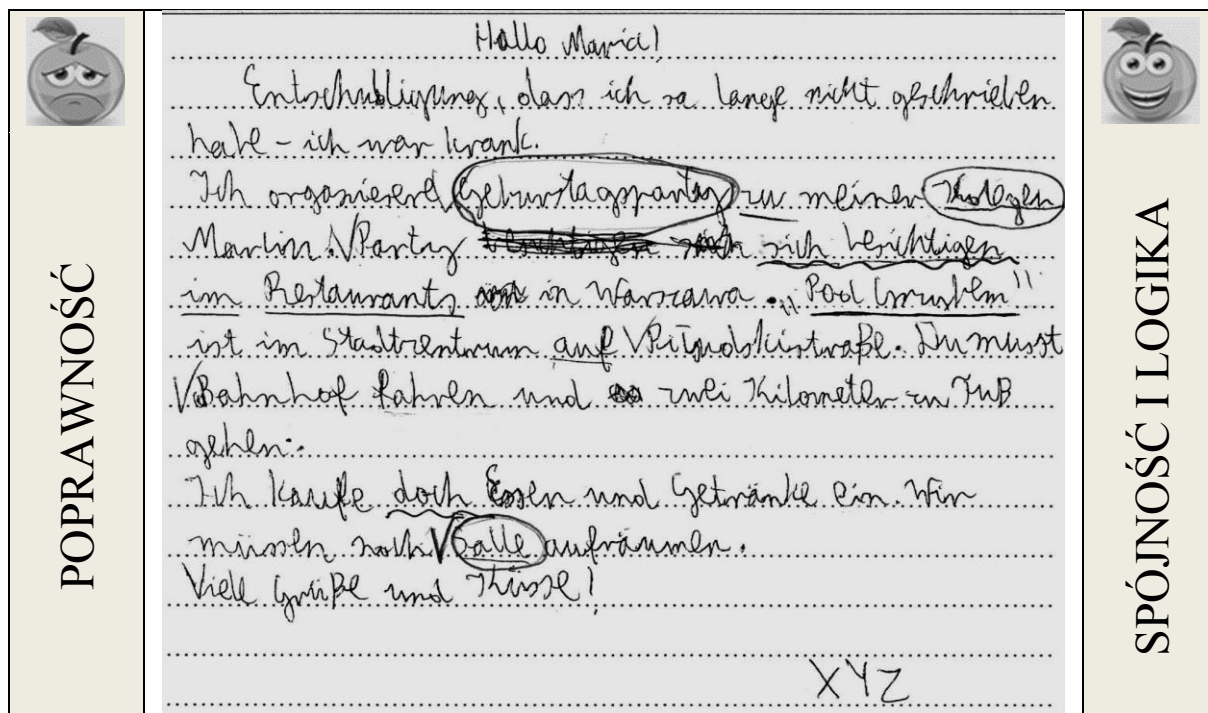 POPRAWNOŚĆ
Hallo Maria!
Entschuldigung, dass ich so lange nicht geschrieben
habe - ich war krank.
Ich organisiere √ Geburstagsparty zu meinen Kolegen
Martin. √ Party sich besichtigen
im Restaurants in Warszawa. "Pod Gruszkem"
ist im Stadtzentrum auf √ Piłsudskistraße. Du musst
√ Bahnhof fahren und zwei Kilometer zu Fuß
gehen.
Ich kaufe doch Essen und Getränke ein. Wir
müssen noch √ Salle aufräumen.
Viele Grüße und Küsse!
XYZ
SPÓJNOŚĆ I LOGIKA